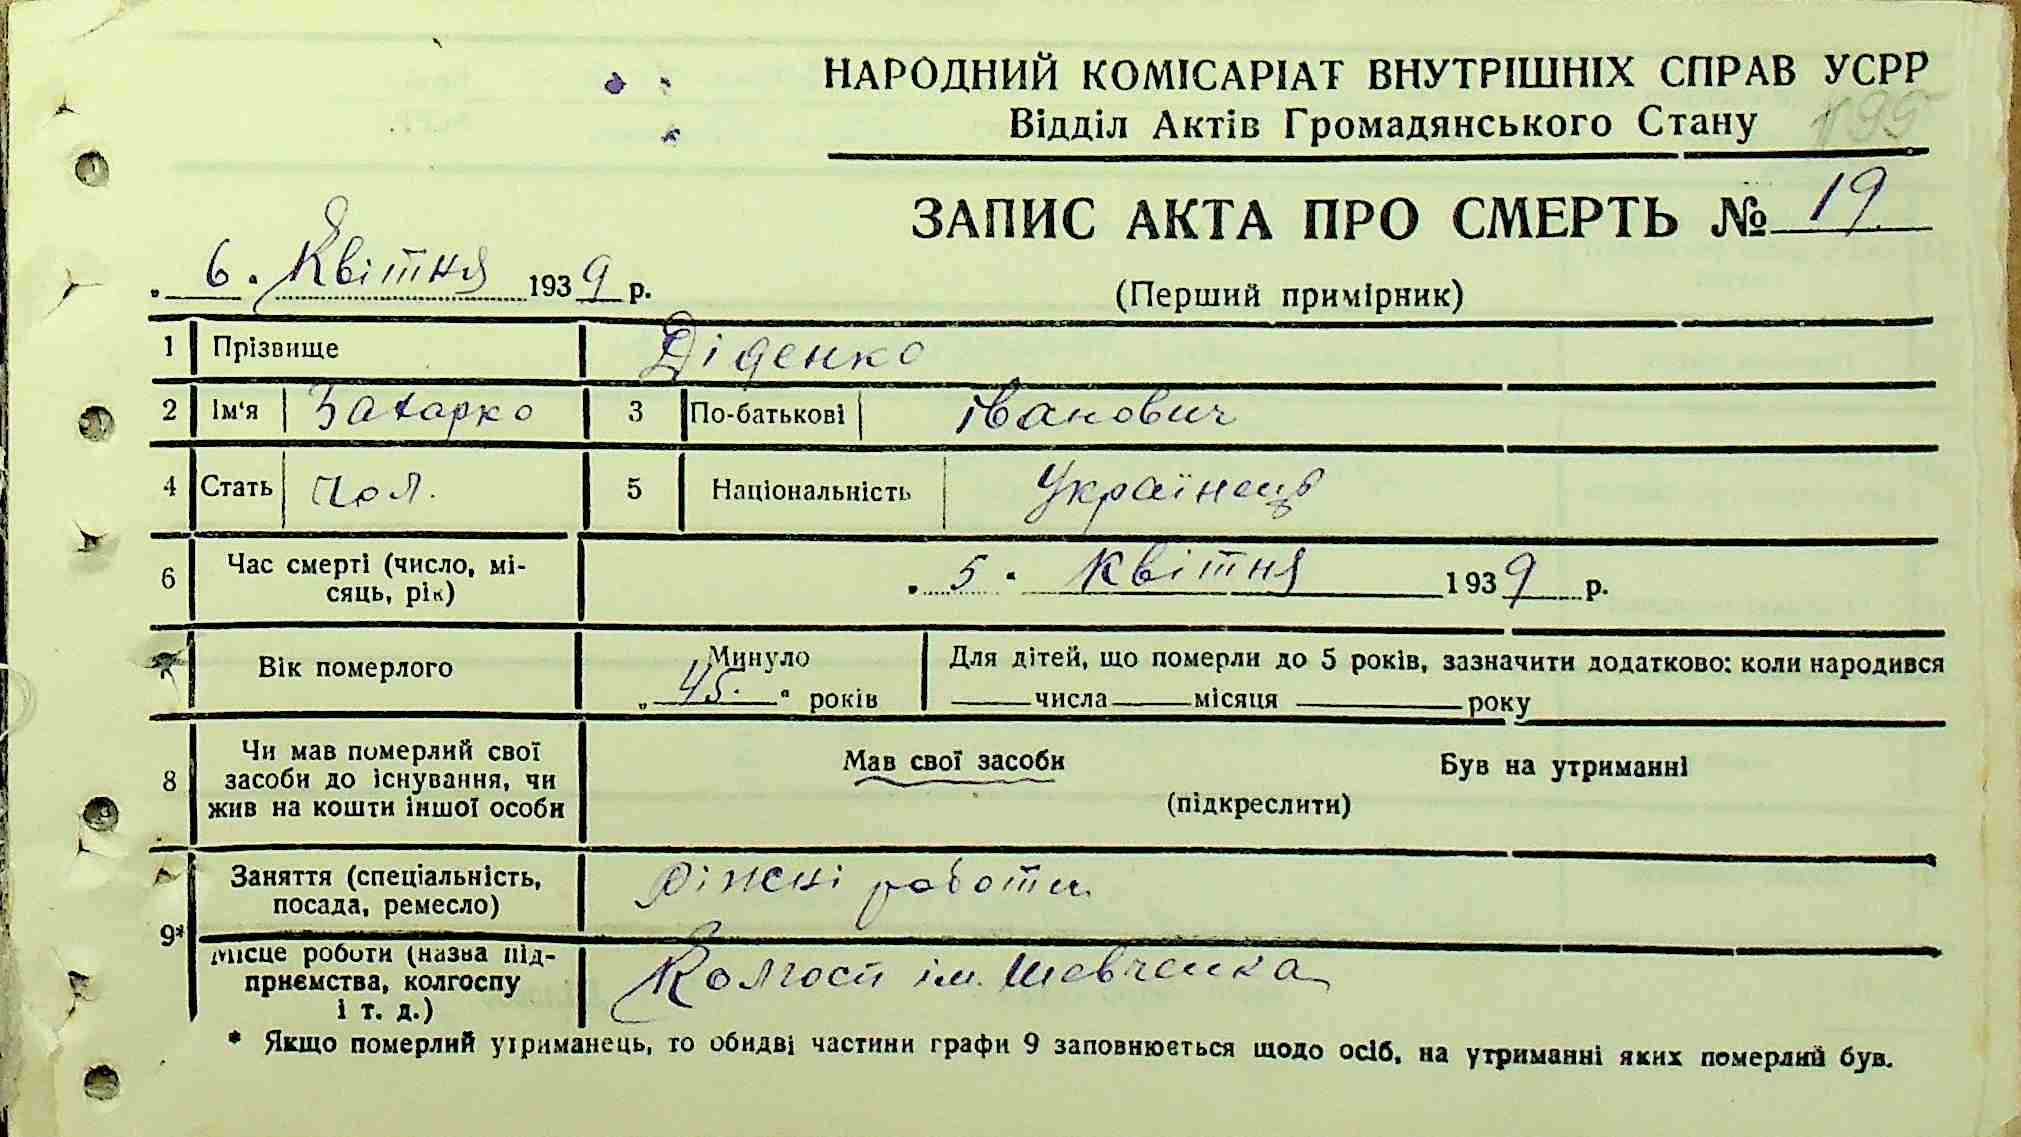 НАРОДНИЙ КОМІСАРІАТ ВНУТРІШНІХ СПРАВ УСРР
Відділ Актів Громадянського Стану
195
ЗАПИС АКТА ПРО СМЕРТЬ № 19
„ 6 " Квітня 1939 р.
(Перший примірник)
1 Прізвище Діденко
2 Ім'я Захарко 3 По-батькові Іванович
4 Стать чол. 5 Національність Українець
6 Час смерті (число, мі-
сяць, рік)
„ 5 " Квітня 1939 р.
7 Вік померлого
Минуло
„ 45 " років
Для дітей, що померли до 5 років, зазначити додатково: коли народився
числа місяця року
8 Чи мав померлий свої
засоби до існування, чи
жив на кошти іншої особи
Мав свої засоби Був на утриманні
(підкреслити)
9*
Заняття (спеціальність,
посада, ремесло)
Ріжні роботи
Місце роботи (назва під-
приємства, колгоспу
і т. д.)
Колгосп ім. Шевченка
* Якщо померлий утриманець, то обидві частини графи 9 заповнюється щодо осіб, на утриманні яких померлий був.